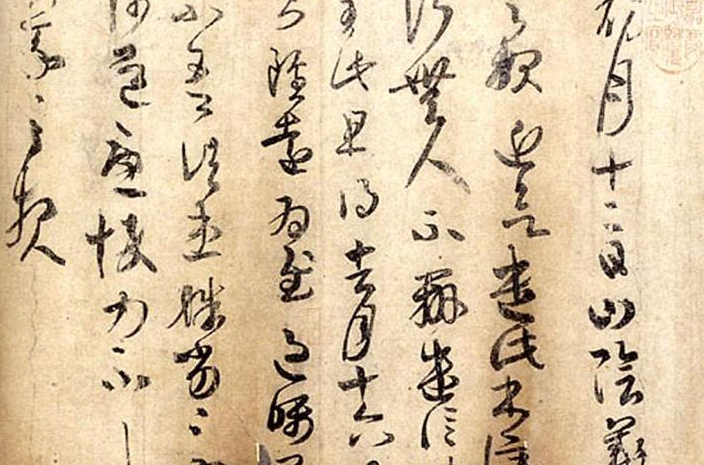 月十二日山陰羲
之報近欲遣此書停
行無人不辦遣信
至此且得去月十六
雖遠為慰過囑
不吾諸患殊劣〻方
涉道憂悴力不
羲之報